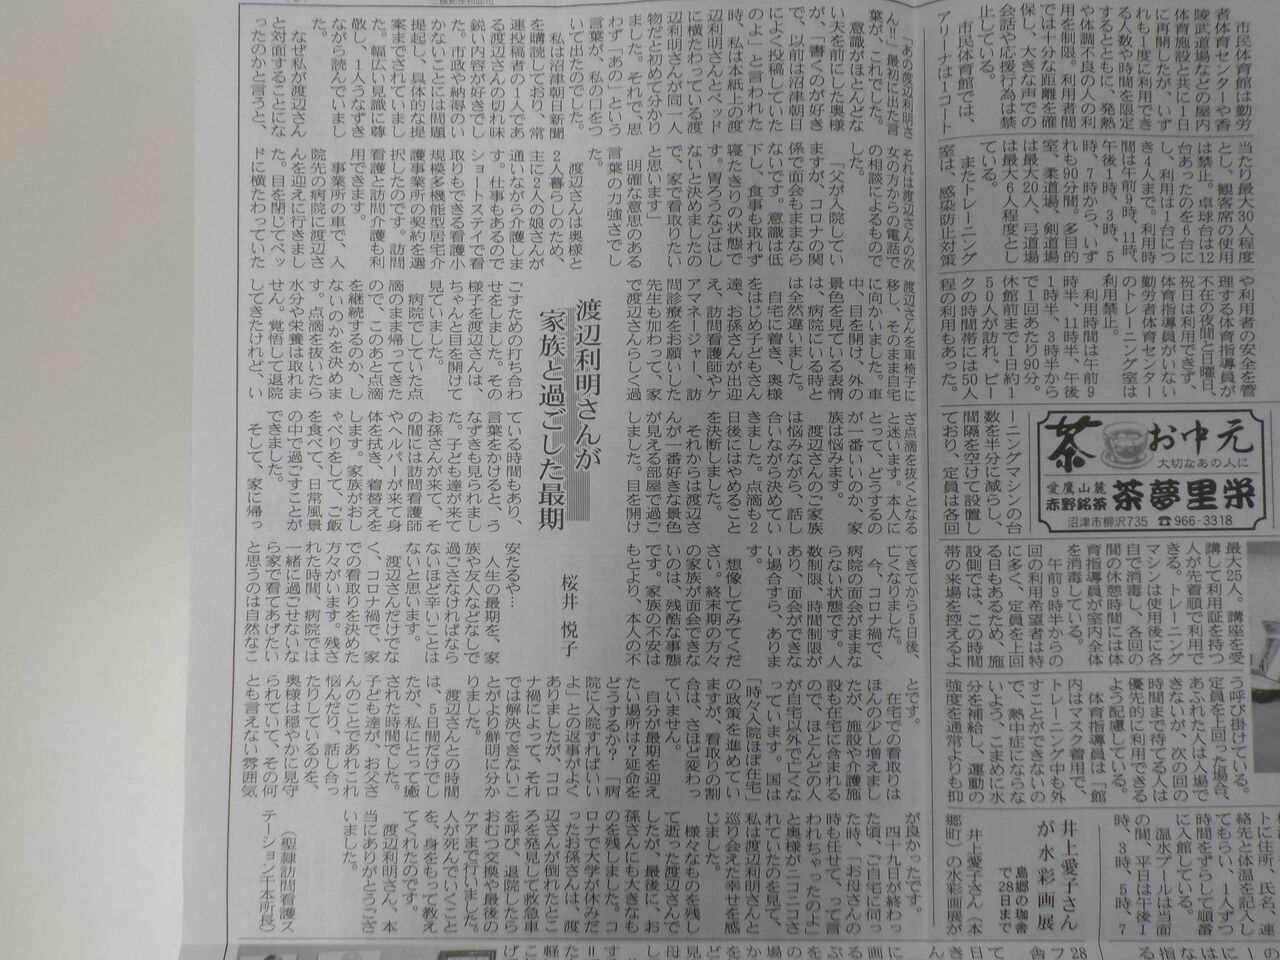 市民体育館は勤労
者体育センターや香
陵武道場などの屋内
体育施設と共に1日
に再開したが、いず
れも1度に利用でき
る人数や時間を限定
するとともに、発熱
や体調不良の人の利
用を制限。利用者間
では十分な距離を確
保し、大きな声での
会話や応援行為は禁
止している。
市民体育館では、
アリーナは1コート
当たり最大30人程度
とし、観客席の使用
は禁止。卓球台は12
台あったのを6台に
し、利用は1台につ
き4人まで。利用時
間は午前9時、11時、
午後1時、3時、5
時、7時から、いず
れも90分間。多目的
室、柔道場、剣道場
は最大20人、弓道場
は最大6人程度とし
ている。
またトレーニング
室は、感染防止対策
や利用者の安全を管
理する体育指導員が
不在の夜間と日曜日、
祝日は利用できず、
体育指導員がいない
勤労者体育センター
のトレーニング室は
利用禁止。
利用時間は午前9
時半、11時半、午後
1時半、3時半から
で1回あたり90分。
休館前まで1日約1
50人が訪れ、ピー
クの時間帯には50人
程の利用もあった。
お中元
大切なあの人に
茶
愛鷹山麓
赤野銘茶
茶夢里栄
沼津市柳沢735 ☎966-3318
トレーニングマシンの台
数を半分に減らし、
間隔を空けて設置し
ており、定員は各回
最大25人。講座を受
講して利用証を持つ
人が先着順で利用で
きる。トレーニング
マシンは使用後に各
自で消毒し、各回の
間の休憩時間には体
育指導員が室内全体
を消毒している。
午前9時半からの
回の利用希望者は特
に多く、定員を上回
る日もあるため、施
設側では、この時間
帯の来場を控えるよ
う呼び掛けている。
定員を上回った場合、
あふれた人は入場で
きないが、次の回の
時間まで待てる人は
優先的に利用できる
よう配慮している。
体育指導員は「館
内はマスク着用で、
トレーニング中も外
すことができないの
で、熱中症にならな
いよう、こまめに水
分を補給し、運動の
強度を通常よりも抑
井上愛子さん
が水彩画展
島郷の珈舎
で28日まで
井上愛子さん(本
郷町)の水彩画展が
渡辺利明さんが
家族と過ごした最期
桜井 悦子
「あの渡辺利明さ
ん!!」最初に出た言
葉が、これでした。
意識がほとんどな
い夫を前にした奥様
が、「書くのが好き
で、以前は沼津朝日
によく投稿していた
のよ」と言われた
時、私は本紙上の渡
辺利明さんとベッド
に横たわっている渡
辺利明さんが同一人
物だと初めて分かり
ました。それで、思
わず「あの」という
言葉が、私の口をつ
いて出たのでした。
私は沼津朝日新聞
を購読しており、常
連投稿者の1人であ
る渡辺さんの切れ味
鋭い内容が好きでし
た。市政や納得のい
かないことには問題
提起し、具体的な提
案までされていまし
た。幅広い見識に尊
敬し、1人うなずき
ながら読んでいまし
た。
なぜ私が渡辺さん
と対面することにな
ったのかと言うと、
それは渡辺さんの次
女の方からの電話で
の相談によるもので
した。
「父が入院してい
ますが、コロナの関
係で面会もままなら
ないです。意識は低
下し、食事も取れず
寝たきりの状態で
す。胃ろうなどはし
ないと決めましたの
で、家で看取りたい
と思います」
明確な意思のある
言葉の力強さでし
た。
渡辺さんは奥様と
2人暮らしのため、
主に2人の娘さんが
通いながら介護しま
す。仕事もあるので
ショートステイで看
取りもできる看護小
規模多機能型居宅介
護事業所の契約を選
択したのです。訪問
看護と訪問介護も利
用できます。
事業所の車で、入
院先の病院に渡辺さ
んを迎えに行きまし
た。目を閉じてベッ
ドに横たわっていた
渡辺さんを車椅子に
移し、そのまま自宅
に向かいました。車
中、目を開け、外の
景色を見ている表情
は、病院にいる時と
は全然違いました。
自宅に着き、奥様
をはじめ子どもさん
達、お孫さんが出迎
え、訪問看護師やケ
アマネージャー、訪
問診療をお願いした
先生も加わって、家
で渡辺さんらしく過
ごすための打ち合わ
せをしました。その
様子を渡辺さんは、
ちゃんと目を開けて
見ていました。
病院でしていた点
滴のまま帰ってきた
ので、このあと点滴
を継続するのか、し
ないのかを決めま
す。点滴を抜いたら
水分や栄養は取れま
せん。覚悟して退院
してきたけれど、い
ざ点滴を抜くとなる
と迷います。本人に
とって、どうするの
が一番いいのか、家
族は悩みます。
渡辺さんのご家族
は悩みながら、話し
合いながら決めてい
きました。点滴も2
日後にはやめること
を決断しました。
それからは渡辺さ
んが一番好きな景色
が見える部屋で過ご
しました。目を開け
ている時間もあり、
言葉をかけると、う
なずきも見られまし
た。子ども達が来て
お孫さんが来て、そ
の間には訪問看護師
やヘルパーが来て身
体を拭き、着替えを
します。家族がおし
ゃべりをして、ご飯
を食べて、日常風景
の中で過ごすことが
できました。
そして、家に帰っ
てきてから5日後、
亡くなりました。
今、コロナ禍で、
病院の面会がままな
らない状態です。人
数制限、時間制限が
あり、面会ができな
い場合すら、ありま
す。
想像してみてくだ
さい。終末期の方々
の家族が面会できな
いのは、残酷な事態
です。家族の不安は
もとより、本人の不
安たるや…
人生の最期を、家
族や友人などなしで
過ごさなければなら
ないほど辛いことは
ないと思います。
渡辺さんだけでな
く、コロナ禍で、家
での看取りを決めた
方々がいます。残さ
れた時間、病院では
一緒に過ごせないな
ら家で看てあげたい
と思うのは自然なこ
とです。
在宅での看取りは
ほんの少し増えまし
たが、施設や介護施
設も在宅に含まれる
ので、ほとんどの人
が自宅以外で亡くな
っています。国は
「時々入院ほぼ在宅」
の政策を進めてい
ますが、看取りの割
合は、さほど変わっ
ていません。
自分が最期を迎え
たい場所は?延命を
どうするか?「病
院に入院すればいい
よ」との返事がよく
ありましたが、コロ
ナ禍によって、それ
では解決できないこ
とがより鮮明に分か
りました。
渡辺さんとの時間
は、5日間だけでし
たが、私にとって癒
された時間でした。
子ども達が、お父さ
んのことであれこれ
悩んだり、話し合っ
たりしているのを、
奥様は穏やかに見守
られていて、その何
とも言えない雰囲気
が良かったです。
四十九日が終わっ
た頃、ご自宅に伺っ
た時、「お母さんの
時も任せて、って言
われちゃったのよ」
と奥様がニコニコさ
れていたのを見て、
私は渡辺利明さんと
巡り会えた幸せを感
じました。
様々なものを残し
て逝った渡辺さんで
したが、最後に、お
孫さんにも大きなも
のを残しました。コ
ロナで大学が休みだ
ったお孫さんは、渡
辺さんが倒れたとこ
ろを発見して救急車
を呼び、退院したら
おむつ交換や最後の
ケアまで行いました。
人が死んでいくこと
を、身をもって教え
てくれたのです。
渡辺利明さん、本
当にありがとうござ
いました。
(聖隷訪問看護ス
テーション千本所長)